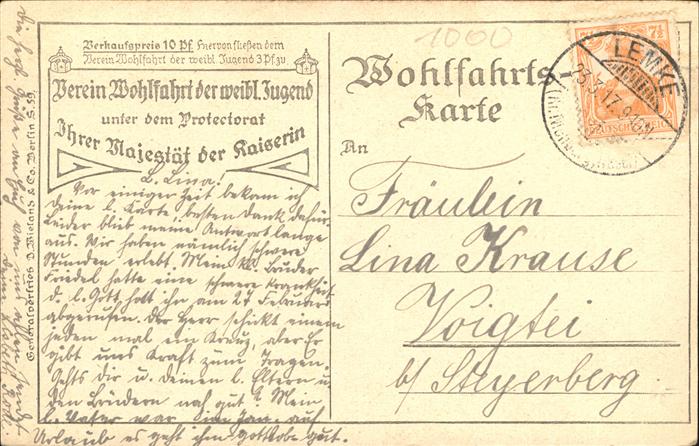 Verkaufspreis 10 Pf. Hiervon fließen dem
Verein Wohlfahrt der weibl. Jugend 3 Pf. zu.
Verein Wohlfahrt der weibl. Jugend
unter dem Protectorat
Ihrer Majestät der Kaiserin
L. Lina!
Vor einiger Zeit bekam ich
deine l. Karte, besten Dank dafür.
Leider blieb meine Antwort lange
aus. Wir haben nämlich schwere
Stunden erlebt. Mein kl. Bruder
Friedel hatte eine schwere Krankheit
d. l. Gott holt ihn am 27 Februar
abgerufen. Der Herr schickt einem
jeden mal ein Kreuz, aber Er
gibt uns Kraft zum Tragen.
Gehts dir u. deinen l. Eltern u
den Brüdern noch gut? Mein
l. Vater war auf
Urlaub es geht ihm Gottlobe gut.
Generalvertrieb D. Wieland & Co. Berlin S. 59.
1000
Wohlfahrts-
Karte
An
Fräulein
Lina Krause
Voigtei
b/ Steyerberg
7½
DEUTSCHES REICH
LEMKE